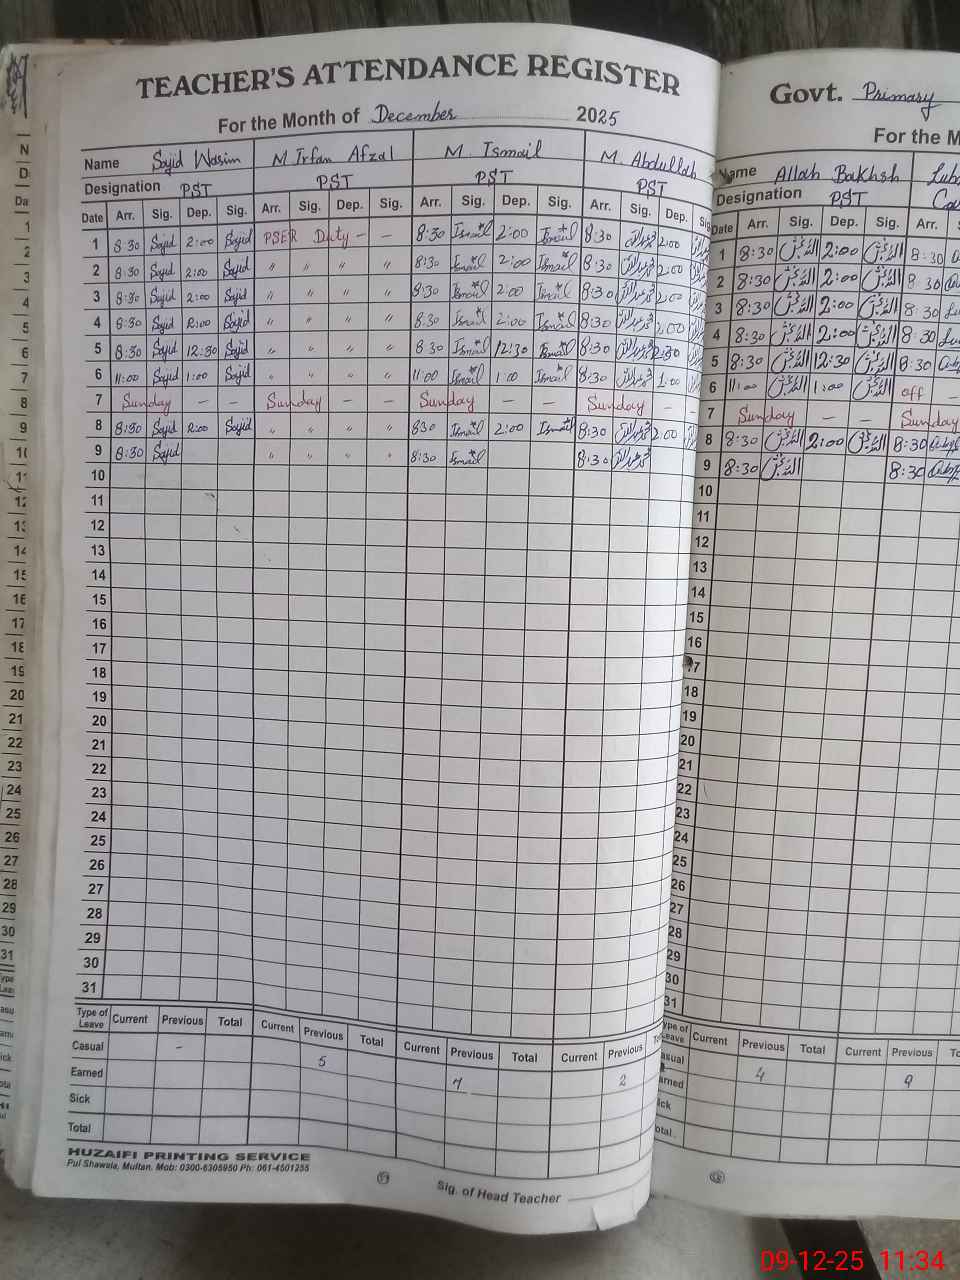 TEACHER'S ATTENDANCE REGISTER
For the Month of December 2025
Name Sajid Wasim M Irfan Afzal M. Ismail M. Abdullah
Designation PST PST PST PST
Date Arr. Sig. Dep. Sig. Arr. Sig. Dep. Sig. Arr. Sig. Dep. Sig. Arr. Sig. Dep. Sig
1 8:30 Sajid 2:00 Sajid PSER Duty - - 8:30 Ismail 2:00 Ismail 8:30 2:00
2 8:30 Sajid 2:00 Sajid " " " " 8:30 Ismail 2:00 Ismail 8:30 2:00
3 8:30 Sajid 2:00 Sajid " " " " 8:30 Ismail 2:00 Ismail 8:30 2:00
4 8:30 Sajid 2:00 Sajid " " " " 8:30 Ismail 2:00 Ismail 8:30 2:00
5 8:30 Sajid 12:30 Sajid " " " " 8:30 Ismail 12:30 Ismail 8:30
6 11:00 Sajid 1:00 Sajid " " " " 11:00 Ismail 1:00 Ismail 8:30 1:00
7 Sunday - - Sunday - - Sunday - - Sunday -
8 8:30 Sajid 2:00 Sajid " " " " 830 Ismail 2:00 Ismail 8:30 2:00
9 8:30 Sajid " " " " 8:30 Ismail 8:30
10
11
12
13
14
15
16
17
18
19
20
21
22
23
24
25
26
27
28
29
30
31
Type of Leave Current Previous Total Current Previous Total Current Previous Total Current Previous
Casual - 5 7 2
Earned
Sick
Total
HUZAIFI PRINTING SERVICE
Pul Shawala, Multan. Mob: 0300-6305950 Ph: 061-4501255
Sig. of Head Teacher
Govt. Primary
For the M
Name Allah Bakhsh
Designation PST
Date Arr. Sig. Dep. Sig. Arr.
1 8:30 2:00 8:30
2 8:30 2:00 8:30
3 8:30 2:00 8:30
4 8:30 2:00 8:30
5 8:30 12:30 8:30
6 11:00 1:00 off
7 Sunday - Sunday
8 8:30 2:00 8:30
9 8:30 8:30
10
11
12
13
14
15
16
17
18
19
20
21
22
23
24
25
26
27
28
29
30
31
Current Previous Total Current Previous
4 9
09-12-25 11:34